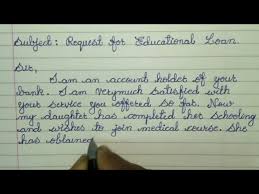 Subject: Request for Educational Loan.
Sir,
I am an account holder of your
bank. I am verymuch satisfied with
your service you offered so far. Now
my daughter has completed her schooling
and wishes to join medical course. She
has obtained